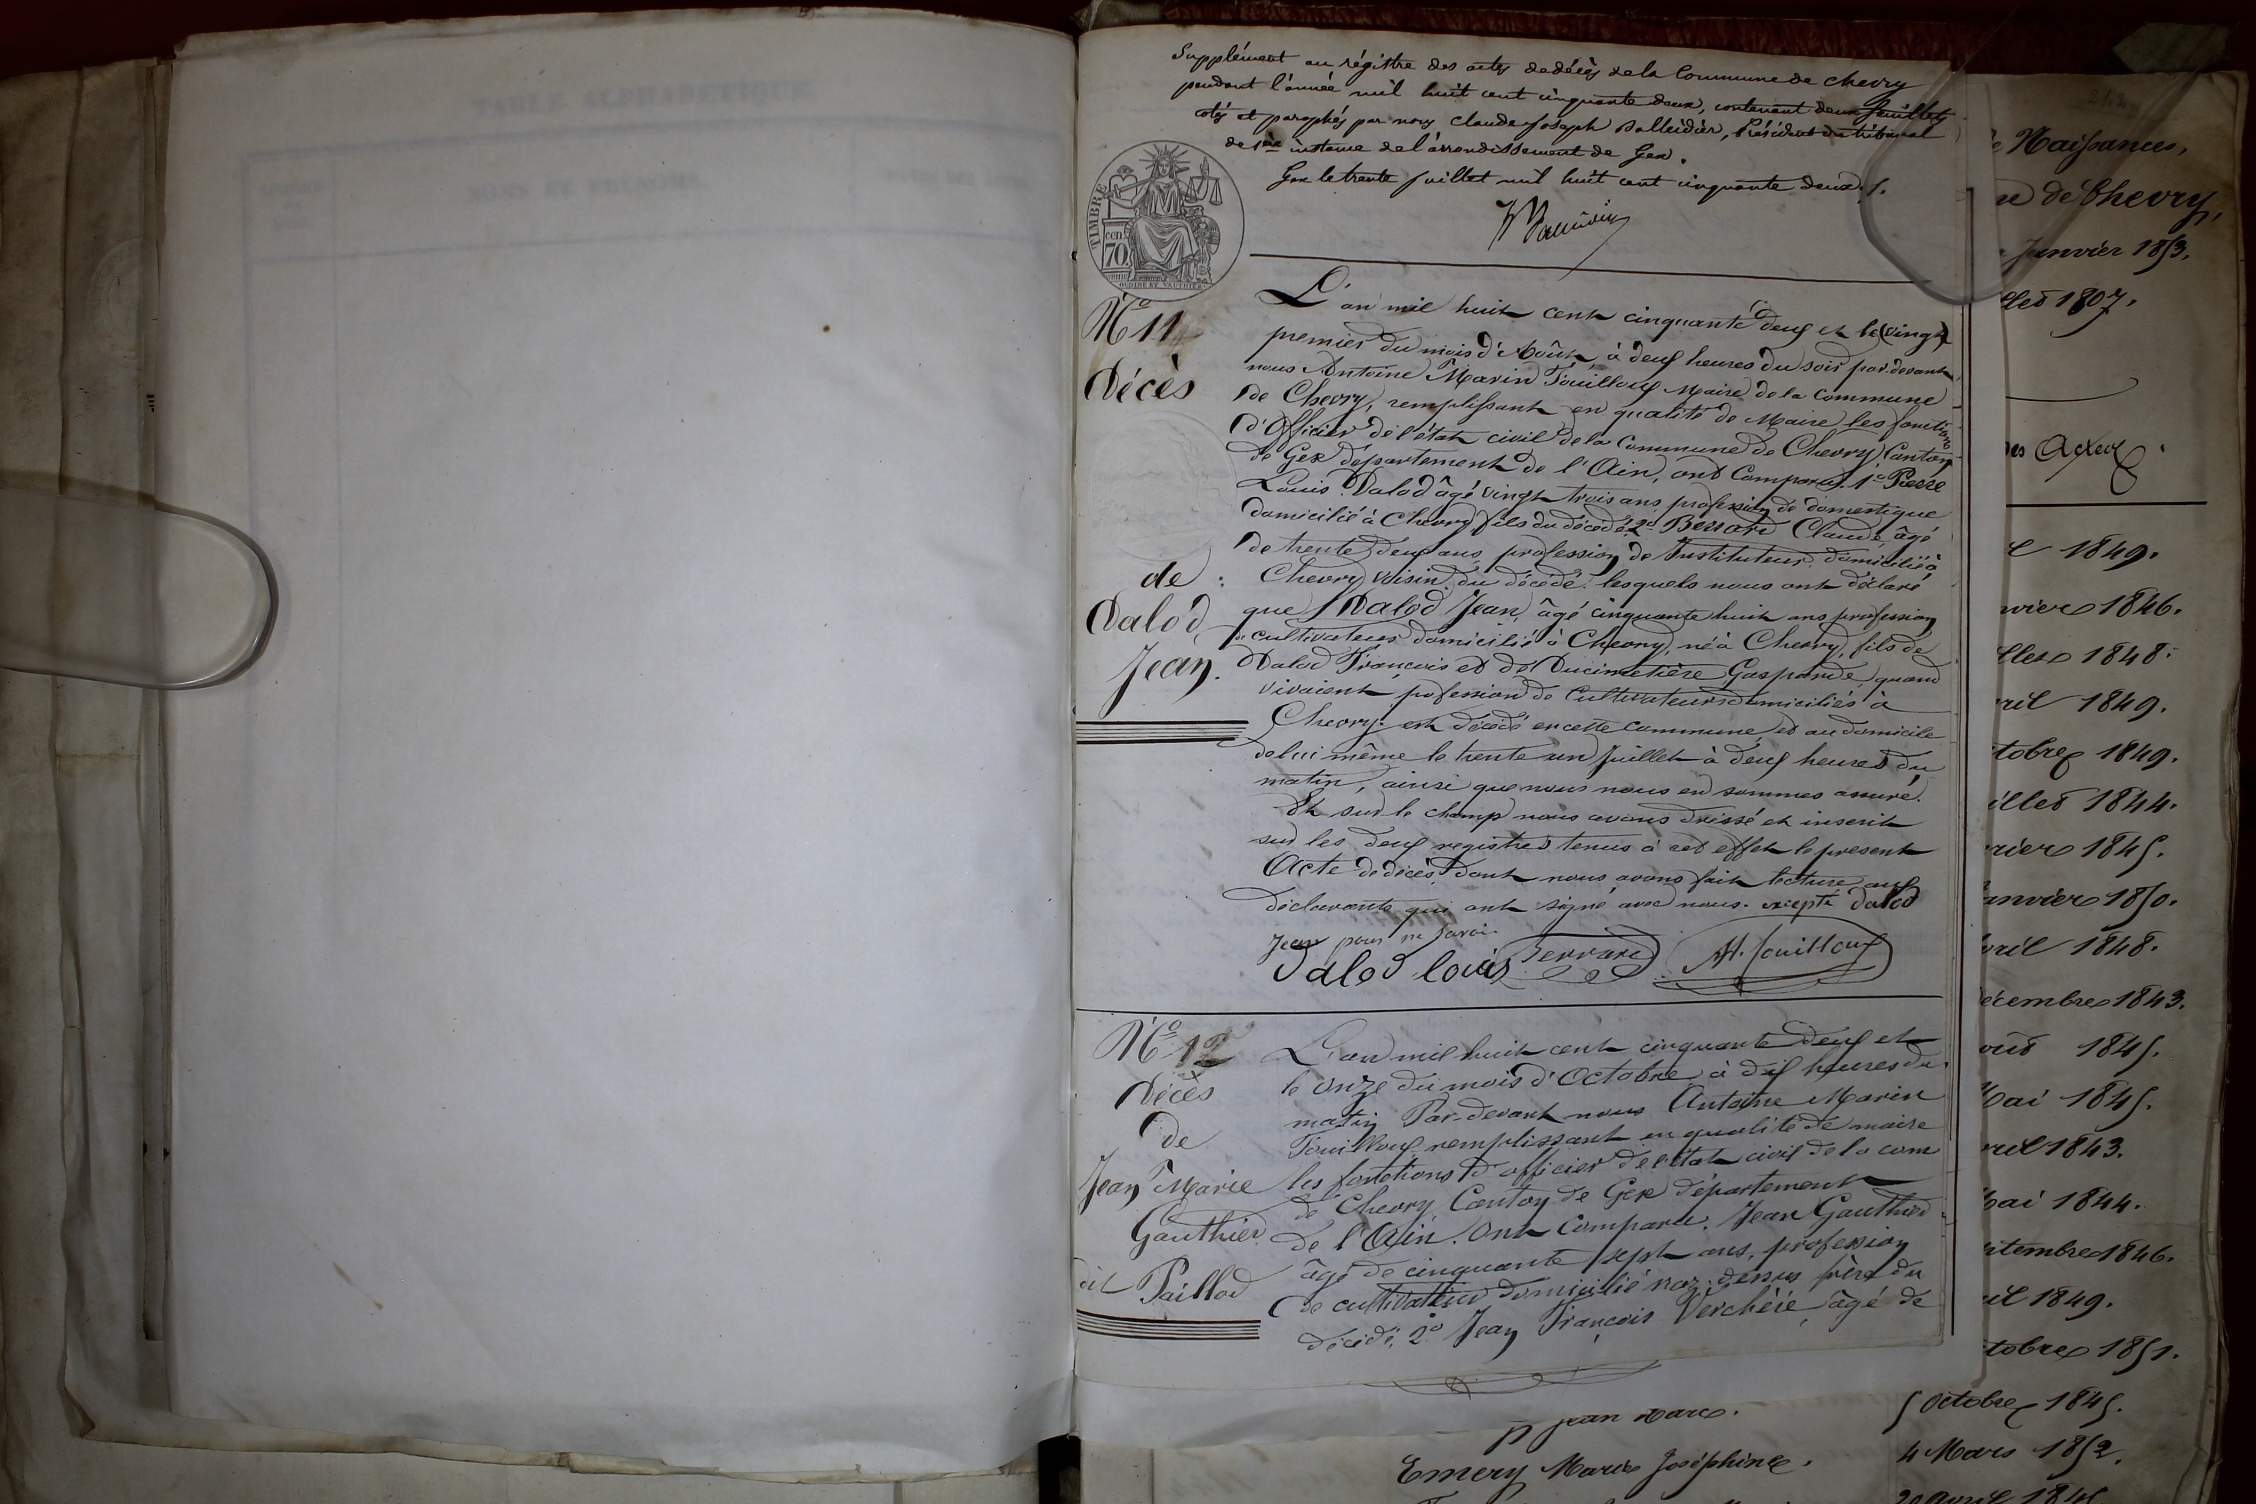 Supplément au régistre des actes de décès de la Commune de Chevry
pendant l'année mil huit cent cinquante deux, contenant deux feuillets
cotés et paraphés par nous Claude Joseph Balleidier, Président du tribunal
de 1ère instance de l'arrondissement de Gex.
Gex le trente juillet mil huit cent cinquante deux ./.
TIMBRE
cen.
70.
OUDINE ET VAUTHIER
No 11
Décès
de :
Dalod
Jean.
L'an mil huit cent cinquante deux et le (vingt)
premier du mois d'Août, à deux heures du soir par-devant
nous Antoine Marin Fouilloux Maire de la commune
de Chevry, remplissant en qualité de Maire les fonctions
d'Officier de l'état civil de la Commune de Chevry, Canton
de Gex département de l'Ain, ont Comparu. 1o Pierre
Louis Dalod âgé vingt trois ans profession de domestique
domicilié à Chevry fils du décédé, 2o Berrard Claude, âgé
de trente deux ans, profession de Instituteur domicilié à
Chevry voisin du décédé. lesquels nous ont déclaré
que Dalod Jean, âgé cinquante huit ans profession
de cultivateur domicilié à Chevry, né à Chevry, fils de
Dalod François et de Ducimetière Gasparde, quand
vivaient, profession de Cultivateurs domiciliés à
Chevry. est décédé en cette commune et au domicile
de lui même le trente un Juillet à deux heures du
matin, ainsi que nous nous en sommes assuré.
Et sur le champ nous avons dressé et inscrit
sur les deux registres tenus à cet effet le present
Acte de décès, dont nous avons fait lecture aux
déclarants qui ont signé avec nous. excepté Dalod
Jean pour ne savoir.
Dalod louis Berrard AM. fouilloux
No 12
Décès
de
Jean Marie
Gauthier
dit Paillod
L'an mil huit cent cinquante deux et
le onze du mois d'Octobre à dix heures du
matin Par-devant nous Antoine Marin
Fouilloux remplissant en qualité de maire
les fonctions d'officier de l'état civil de la com
de Chevry, Canton de Gex département
de l'Ain. Ont Comparu. Jean Gauthier
âgé de cinquante sept ans, profession
de cultivateur domicilié naz-dessus frère du
décédé, 2o Jean François Verchère, âgé de
Jean Marc.
Emery Marie Joséphine.
de Naissances,
de Chevry,
Janvier 1853.
1807.
des Actes
1849.
1846.
1848.
1849.
1849.
1844.
1845.
1850.
1848.
Décembre 1843.
1845.
Mai 1845.
1843.
Mai 1844.
1846.
1849.
1851.
5 Octobre 1845.
4 Mars 1852.